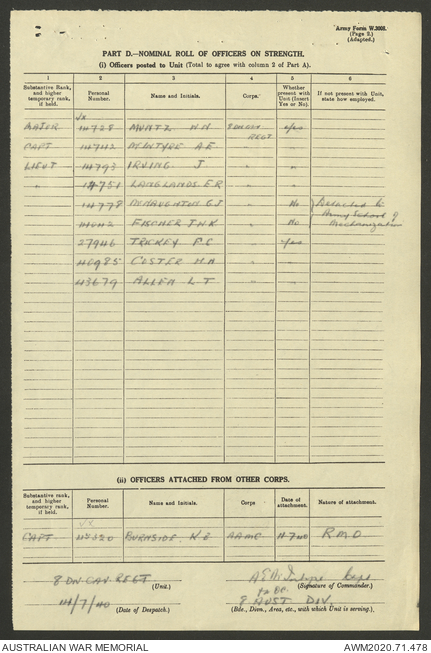 Army Form W.3008.
(Page 2.)
(Adapted.)
PART D.—NOMINAL ROLL OF OFFICERS ON STRENGTH.
(i) Officers posted to Unit (Total to agree with column 2 of Part A).
1 2 3 4 5 6
Substantive Rank, and higher temporary rank, if held. Personal Number. Name and Initials. Corps. Whether present with Unit (Insert Yes or No). If not present with Unit, state how employed.
VX
MAJOR 14728 MUNTZ N.N REGT yes
CAPT 14742 McINTYRE A E " "
LIEUT 14793 IRVING J " "
" 14751 LANGLANDS E.R " "
14778 McNAUGHTON G J " No Detached to
FISCHER " No Army School of Mechanization
27946 TRICKEY F C " yes
40985 COSTER H A " "
43679 ALLEN L T " "
(ii) OFFICERS ATTACHED FROM OTHER CORPS.
Substantive rank, and higher temporary rank, if held. Personal Number. Name and Initials. Corps Date of attachment. Nature of attachment.
VX
CAPT BURNSIDE AAMC RMO
8 DIV CAV REGT (Unit.)
A E McIntyre Capt
(Signature of Commander.)
/7/40 (Date of Despatch.)
8 AUST DIV
(Bde., Divn., Area, etc., with which Unit is serving).
AUSTRALIAN WAR MEMORIAL
AWM2020.71.478